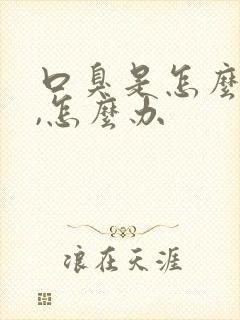 口臭是怎麼
,怎麼办
浪在天涯